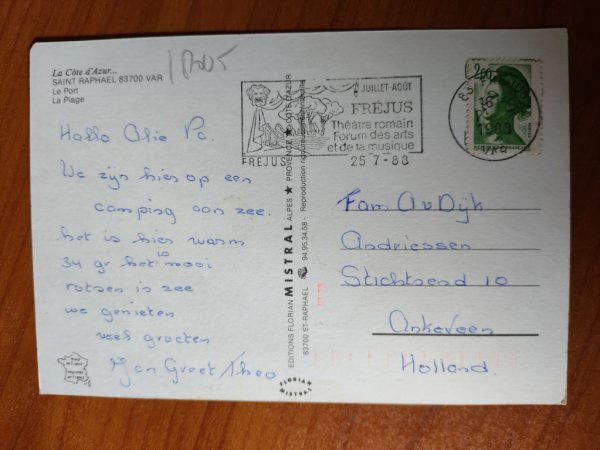 La Côte d'Azur...
SAINT RAPHAEL 83700 VAR
Le Port
La Plage
Hallo Ohie Pa.
We zijn hier op een
camping aan zee.
het is hier warm
34 gr het is mooi
rotsen in zee
we genieten
veel groeten
Jan Greet Theo
EDITIONS FLORIAN MISTRAL ALPES ★ PROVENCE ★ COTE D'AZUR
83700 ST-RAPHAEL 94.95.34.58 - Reproduction
FLORIAN
MISTRAL
FREJUS
JUILLET-AOÛT
FRÉJUS
Théâtre romain
Forum des arts
et de la musique
25-7-88
2,00
Fam A v Dijk
Andriessen
Stichtsend 10
Ankeveen
Holland.